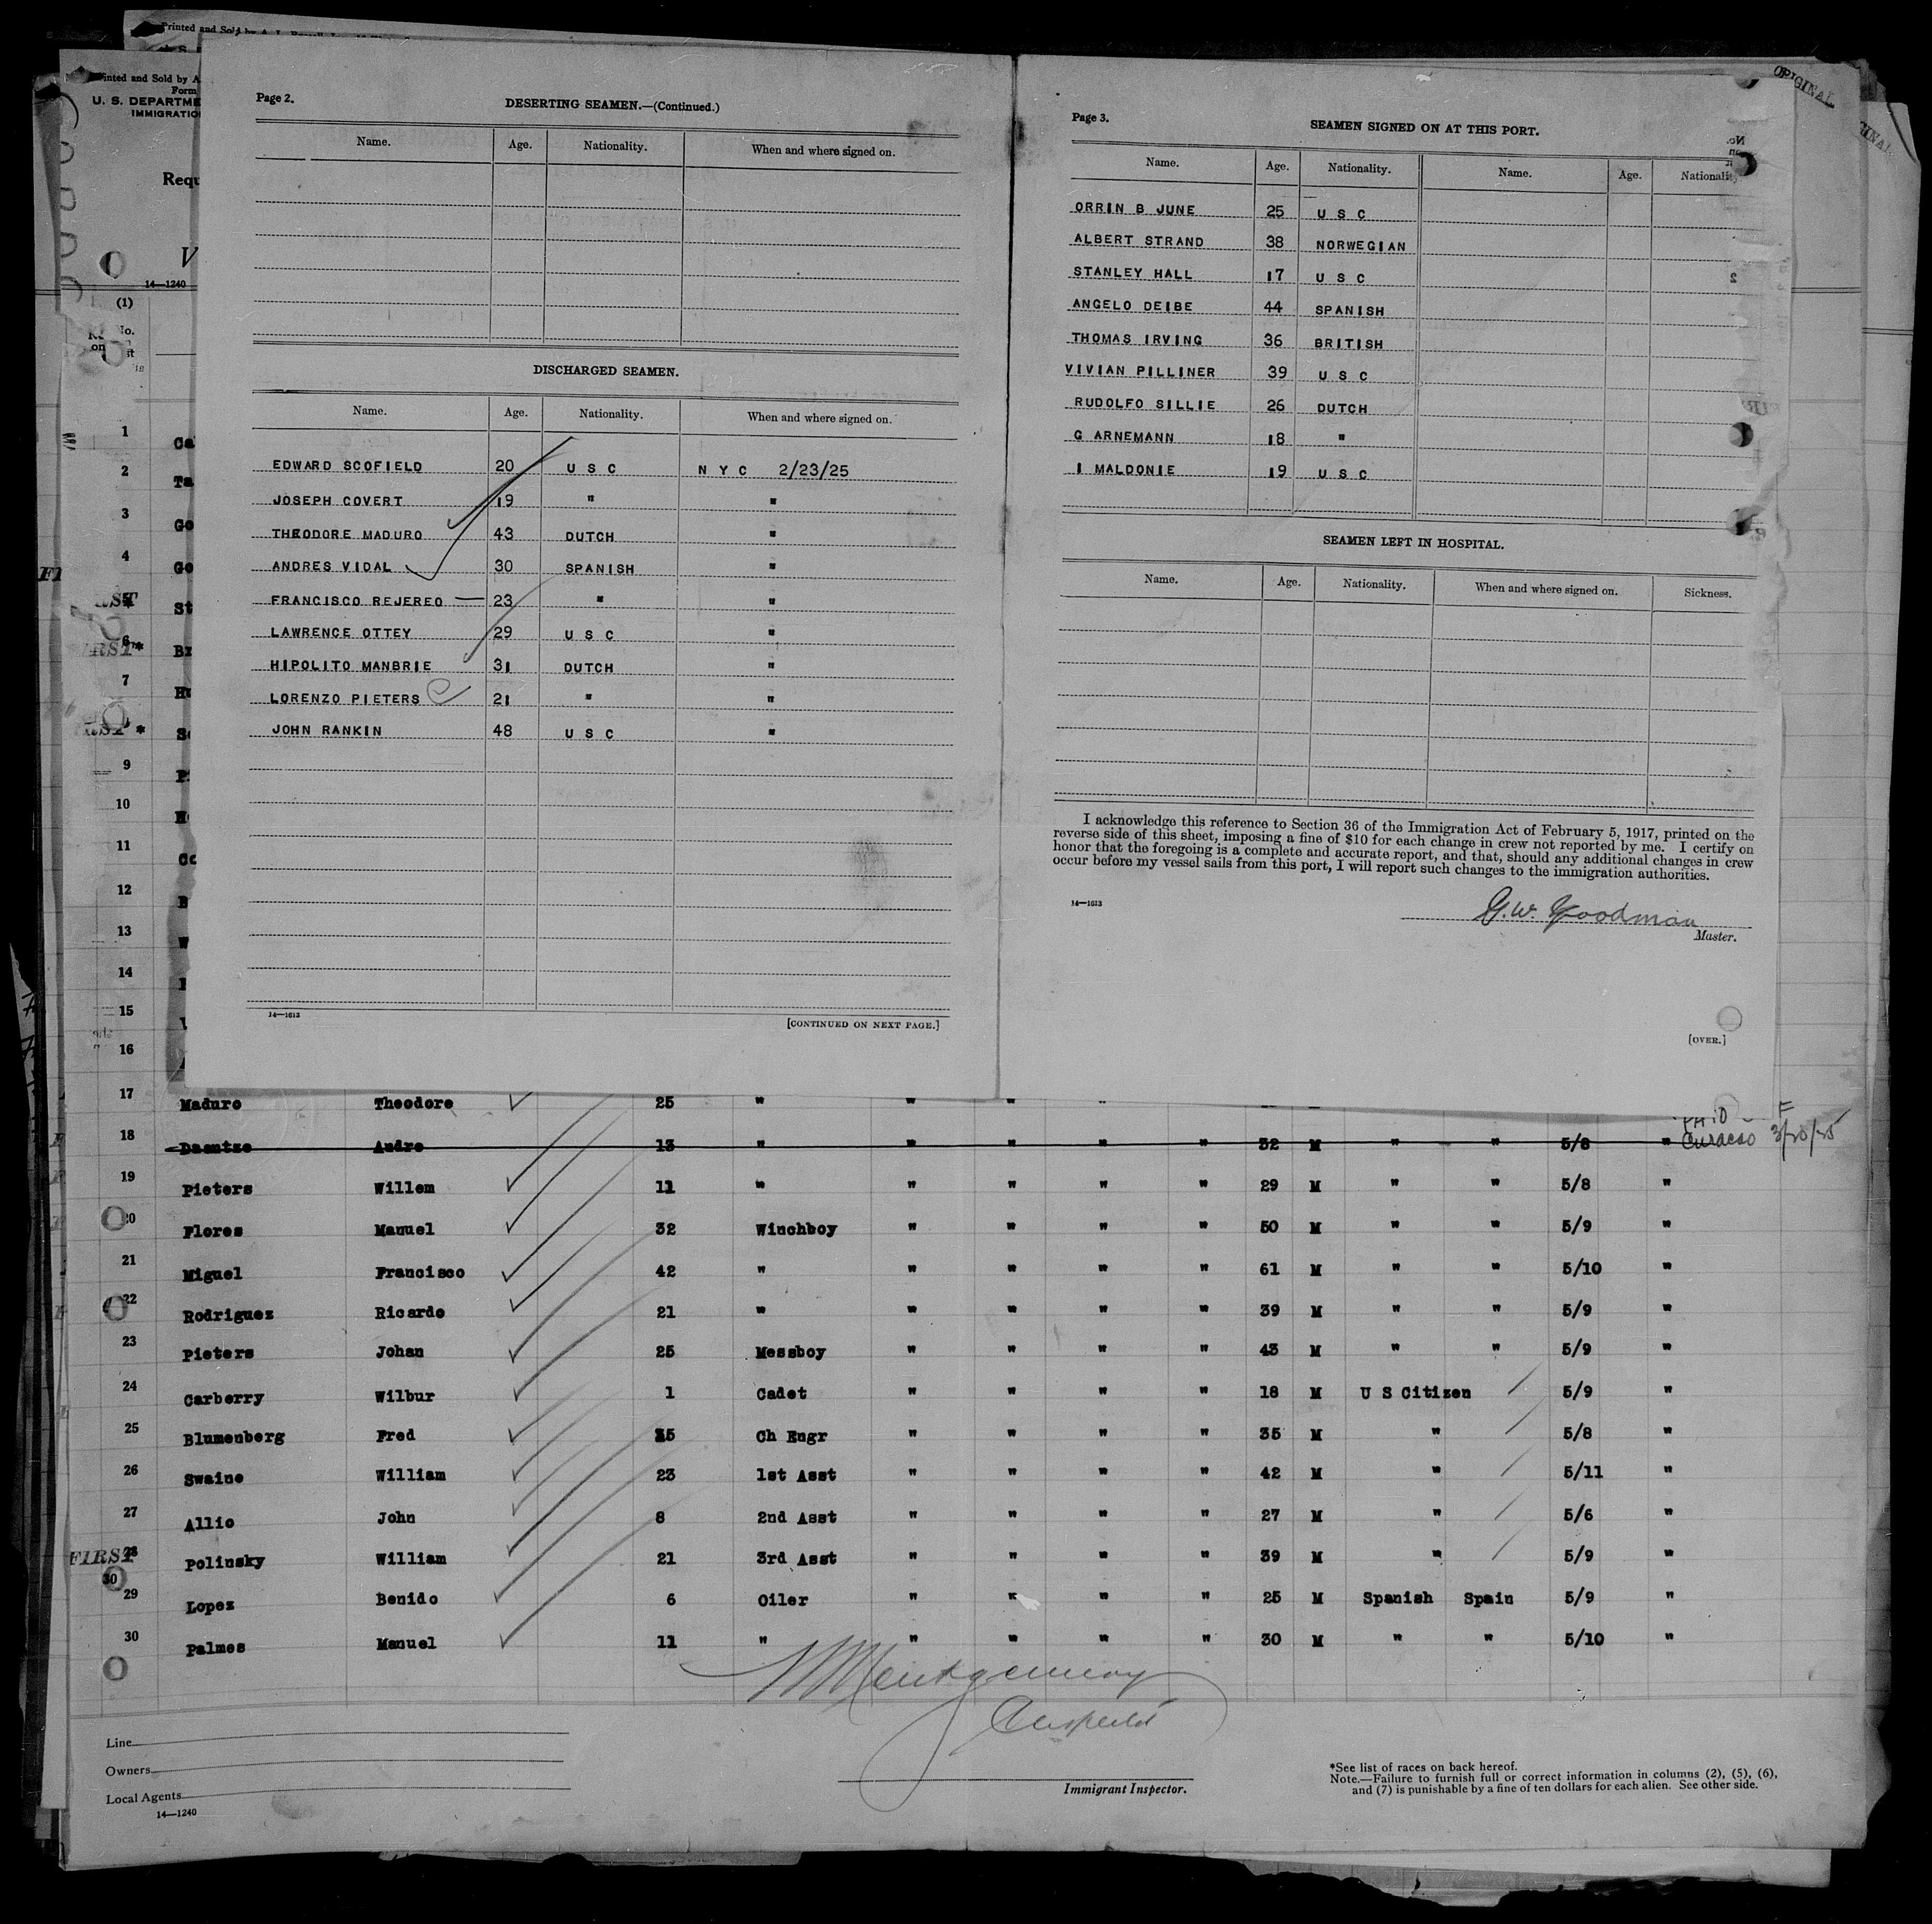 Printed and Sold by A
Form
U. S. DEPARTME
IMMIGRATIO
Requ
V
14—1240
(1)
Page 2.
DESERTING SEAMEN.—(Continued.)
Name. Age. Nationality. When and where signed on.
DISCHARGED SEAMEN.
Name. Age. Nationality. When and where signed on.
EDWARD SCOFIELD 20 U S C N Y C 2/23/25
JOSEPH COVERT 19 " "
THEODORE MADURO 43 DUTCH "
ANDRES VIDAL 30 SPANISH "
FRANCISCO REJEREO 23 " "
LAWRENCE OTTEY 29 U S C "
HIPOLITO MANBRIE 31 DUTCH "
LORENZO PIETERS 21 " "
JOHN RANKIN 48 U S C "
14—1613
[CONTINUED ON NEXT PAGE.]
ORIGINAL
Page 3.
SEAMEN SIGNED ON AT THIS PORT.
Name. Age. Nationality. Name. Age. Nationality
ORRIN B JUNE 25 U S C
ALBERT STRAND 38 NORWEGIAN
STANLEY HALL 17 U S C
ANGELO DEIBE 44 SPANISH
THOMAS IRVING 36 BRITISH
VIVIAN PILLINER 39 U S C
RUDOLFO SILLIE 26 DUTCH
G ARNEMANN 18 "
I MALDONIE 19 U S C
SEAMEN LEFT IN HOSPITAL.
Name. Age. Nationality. When and where signed on. Sickness.
I acknowledge this reference to Section 36 of the Immigration Act of February 5, 1917, printed on the
reverse side of this sheet, imposing a fine of $10 for each change in crew not reported by me. I certify on
honor that the foregoing is a complete and accurate report, and that, should any additional changes in crew
occur before my vessel sails from this port, I will report such changes to the immigration authorities.
14—1613
G. W. Goodman
Master.
[OVER.]
1 Ca
2 Ta
3 Go
4 Go
St
6 Br
7
9
10
11 Co
12 B
13 W
14
15
16
17 Maduro Theodore 25 " " " "
18 Daantze Andre 13 " " " " " 32 M " " 5/8 " Curacao 3/20/25
19 Pieters Willem 11 " " " " " 29 M " " 5/8 "
20 Flores Manuel 32 Winchboy " " " " 50 M " " 5/9 "
21 Miguel Francisco 42 " " " " " 61 M " " 5/10 "
22 Rodriguez Ricardo 21 " " " " " 39 M " " 5/9 "
23 Pieters Johan 25 Messboy " " " " 43 M " " 5/9 "
24 Carberry Wilbur 1 Cadet " " " " 18 M U S Citizen 5/9 "
25 Blumenberg Fred 15 Ch Engr " " " " 35 M " 5/8 "
26 Swaine William 23 1st Asst " " " " 42 M " 5/11 "
27 Allio John 8 2nd Asst " " " " 27 M " 5/6 "
FIRST 28 Polinsky William 21 3rd Asst " " " " 39 M " 5/9 "
30
29 Lopez Benido 6 Oiler " " " " 25 M Spanish Spain 5/9 "
30 Palmes Manuel 11 " " " " " 30 M " " 5/10 "
Montgomery
Line
Owners
Local Agents
14—1240
Immigrant Inspector.
*See list of races on back hereof.
Note.—Failure to furnish full or correct information in columns (2), (5), (6),
and (7) is punishable by a fine of ten dollars for each alien. See other side.